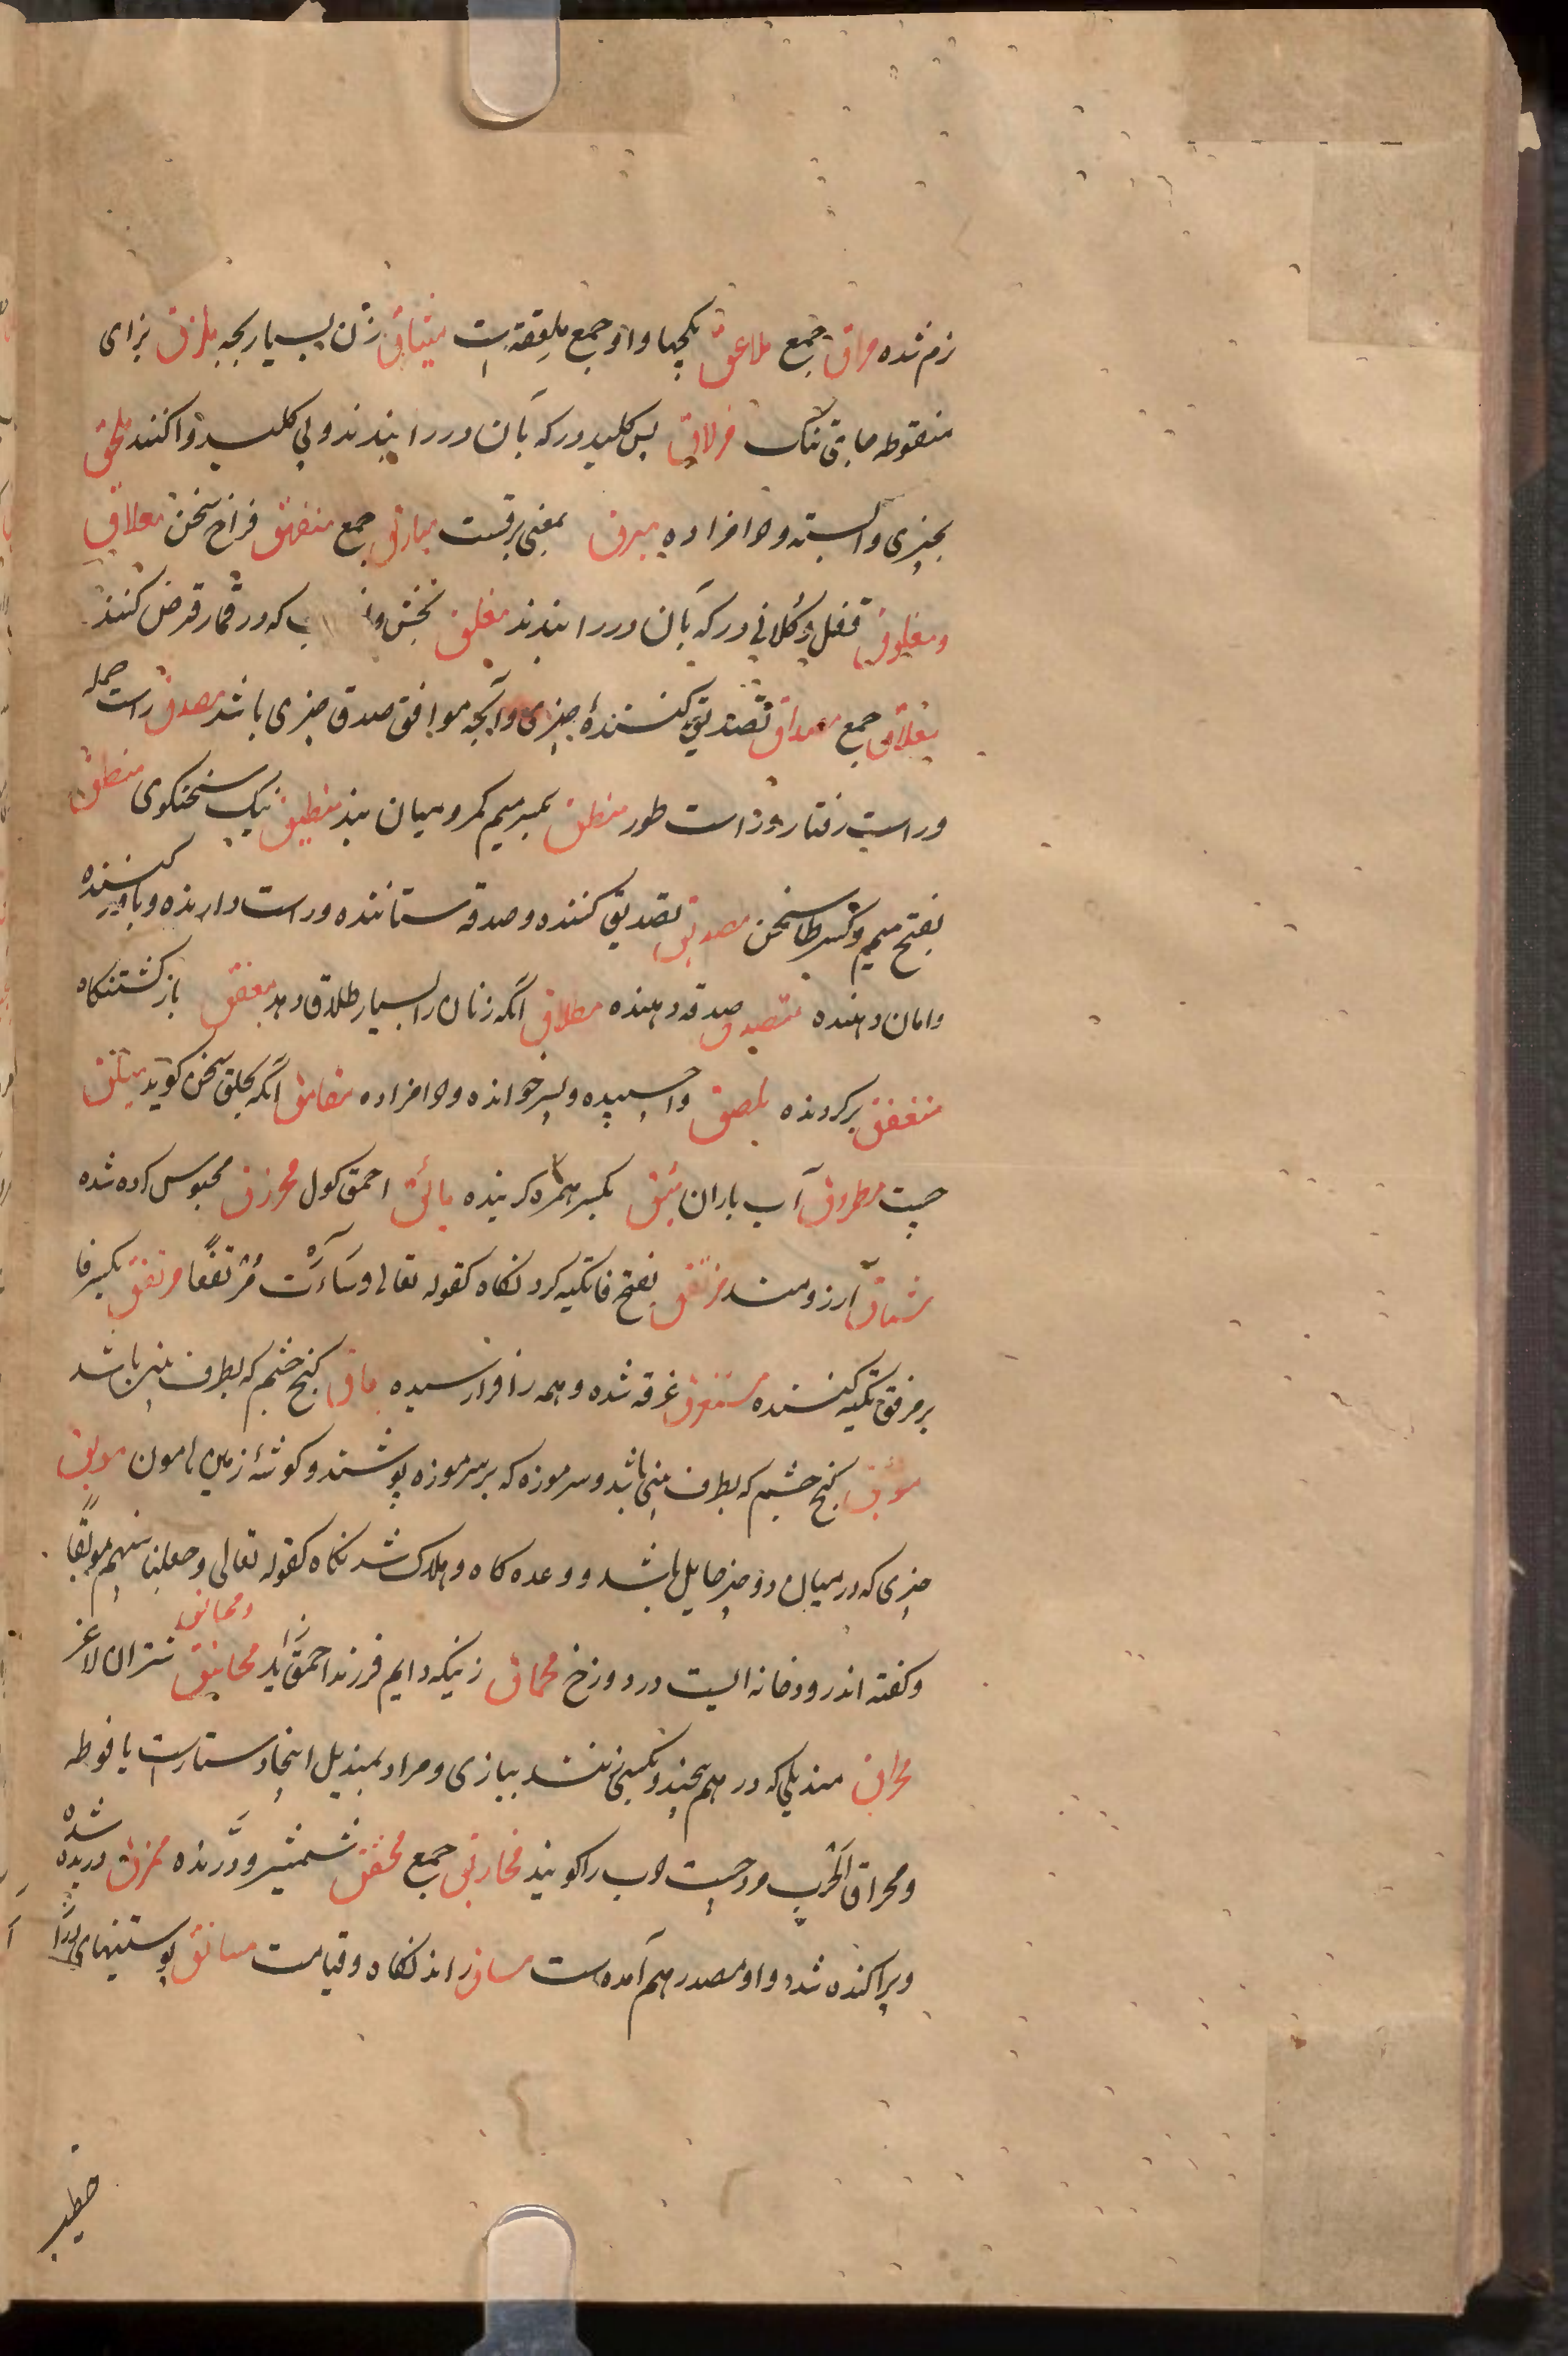 نرم شده مراق جمع ملاعق کچها و او جمع ملعقه است منتاق زن بسیار بچه ملزق بزای
منقوطه جای تنک مزلاق پس کلید در که بآن در را بندند و بی کلید وا کنند ملحق
بچیزی وابسته و حرامزاده مبرق بمعنی برقست مبارق جمع منفهق فراخ سخن مغلاق
و مغلوق قفل و کلانی در که بآن در را بندند مغلق بخش و که در قمار قرض کنند
مغلاق جمع مصداق تصدیق کنندۀ چیزی و آنچه موافق صدق چیزی باشد مصدق راست حمله
و راست رفتار و راست طور منطق بکسر میم کمر و میان بند منطیق نیک سخنکوی منطق
بفتح میم و کسر طا سخن مصدق تصدیق کننده و صدقه ستاننده و راست دارنده و باور کننده
و امان دهنده متصدق صدقه دهنده مطلاق آنکه زنان را بسیار طلاق دهد مغفق بازکشتنکاه
منغفق برکردنده ملصق واچسپیده و پسر خوانده و حرامزاده مفامق آنکه بحلق سخن کوید
چپت مطروق آب باران مئق بکسر همزه کرینده مائق احمق کول محرزق محبوس کرده شده
مشتاق آرزومند مرتفق بفتح فا تکیه کردنکاه کقوله تعالی و ساءَت مُرتفقًا مرتفق بکسر فا
بر مرفق تکیه کننده مستغرق غرقه شده و همه را فرا رسیده ماق کنج چشم که بطرف بینی باشد
موق کنج چشم که بطرف بینی باشد و سر موزه که بر سر موزه پوشند و کوشۀ زمین هامون موبق
چیزی که در میان دو چیز حایل باشد و وعده کاه و هلاک شدنکاه کقوله تعالی و جعلنا بینهم موبقًا
و کفته اند رودخانه ایست در دوزخ محماق زنیکه دایم فرزند احمق زاید محانیق و محانق شتران لاغر
محراق مندیلی که در هم پیچند و بکسی زنند ببازی و مراد بمندیل اینجا دستارست یا فوطه
و محراق الحرب مرد چست حرب را کویند مخاریق جمع مخفق شمشیر و دَرنده ممزق دریده شده
و پراکنده شده و او مصدر هم آمده است مساق راندنکاه و قیامت مساتق پوستینهای دراز
خطیب